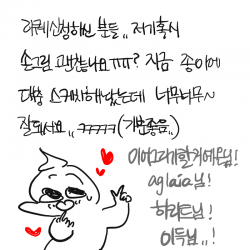 리퀘신청하신 분들,, 저기혹시
손그림 괜찮나요ㅠㅠ? 지금 종이에
대충 스케치해놨는데 너무너무~
잘돼서요,, ㅋㅋㅋㅋ(기분좋음,,
aglaia님!
하리트님!
이득님,,!